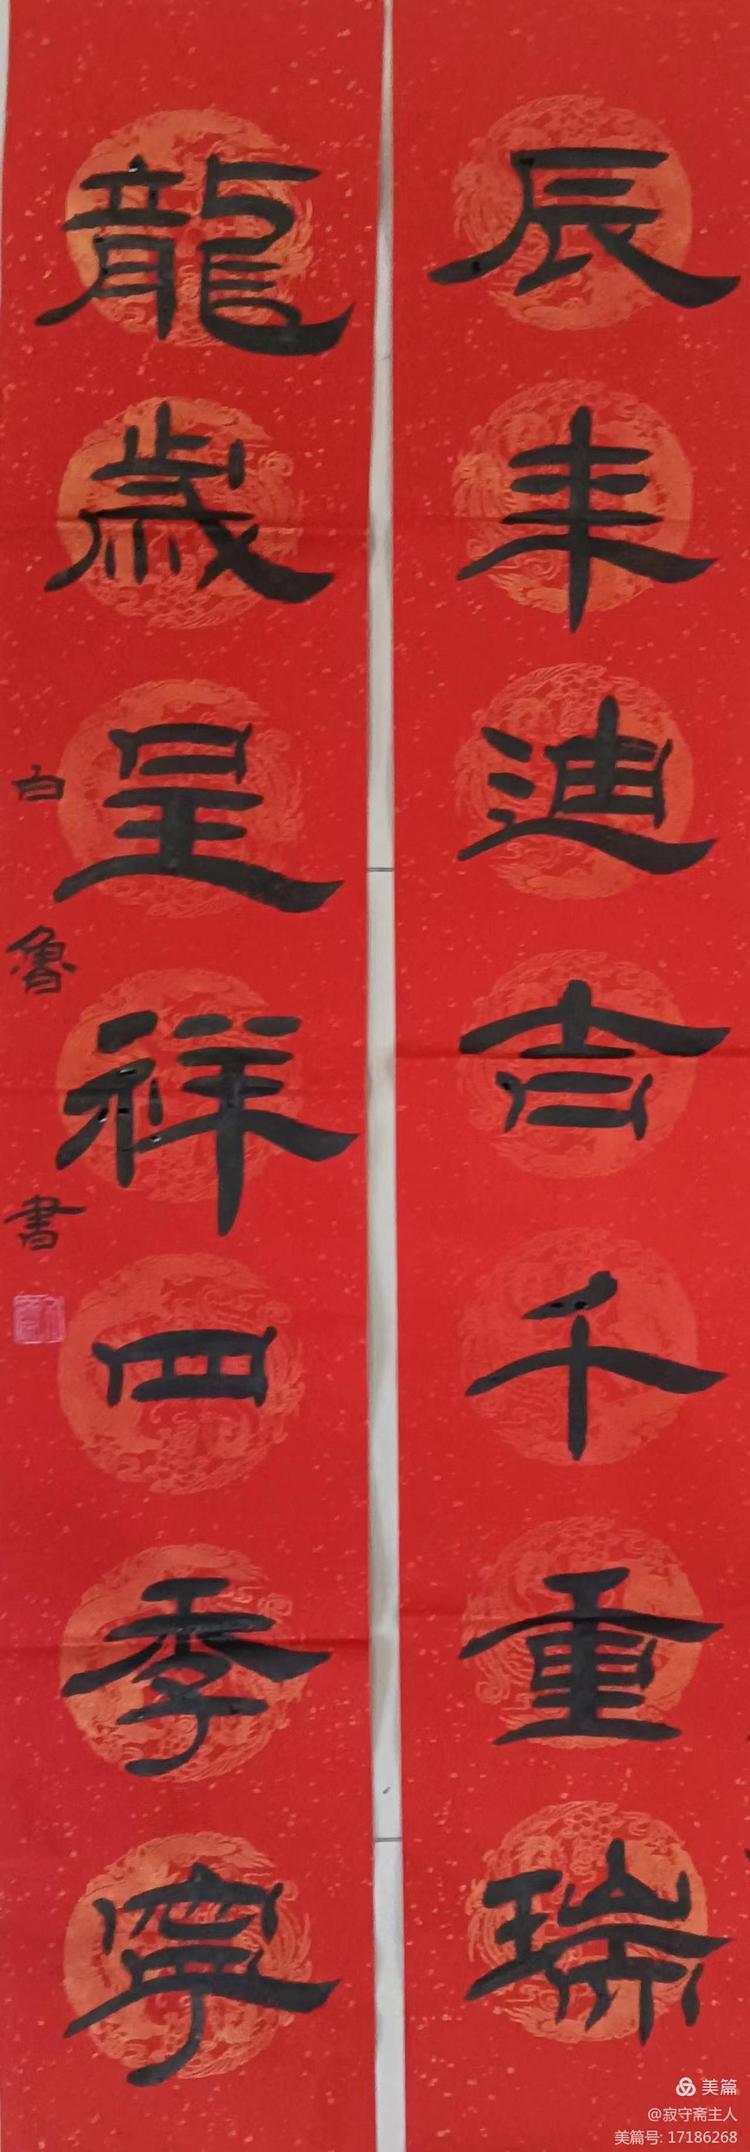 辰来迪吉千重瑞
龍歲呈祥四季寧
白魯書
美篇
@寂守斋主人
美篇号: 17186268